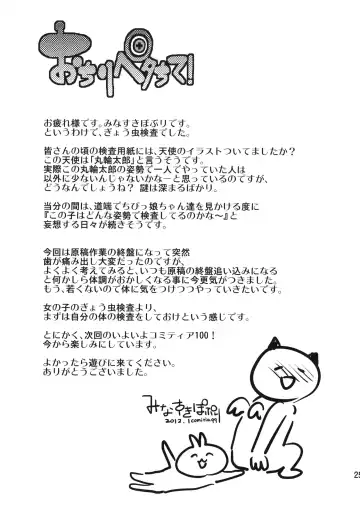 おちりペタって!
お疲れ様です。みなすきぽぷりです。
というわけで、ぎょう虫検査でした。
皆さんの頃の検査用紙には、天使のイラストついてましたか?
この天使は「丸輪太郎」と言うそうです。
実際この丸輪太郎の姿勢で一人でやっていた人は
以外に少ないんじゃないかなーと思っているのですが、
どうなんでしょうね? 謎は深まるばかり。
当分の間は、道端でちびっ娘ちゃん達を見かける度に
『この子はどんな姿勢で検査してるのかな~』と
妄想する日々が続きそうです。
今回は原稿作業の終盤になって突然
歯が痛み出し大変だったのですが、
よくよく考えてみると、いつも原稿の終盤追い込みになる
と何かしら体調がおかしくなる事に今更気がつきました。
もう、若くないので体に気をつけつつやっていきたいです。
女の子のぎょう虫検査より、
まずは自分の体の検査をしておけという感じです。
とにかく、次回のいよいよコミティア100!
今から楽しみにしています。
よかったら遊びに来てください。
ありがとうございました。
みなすきぽぷり
2012. comitia99
25